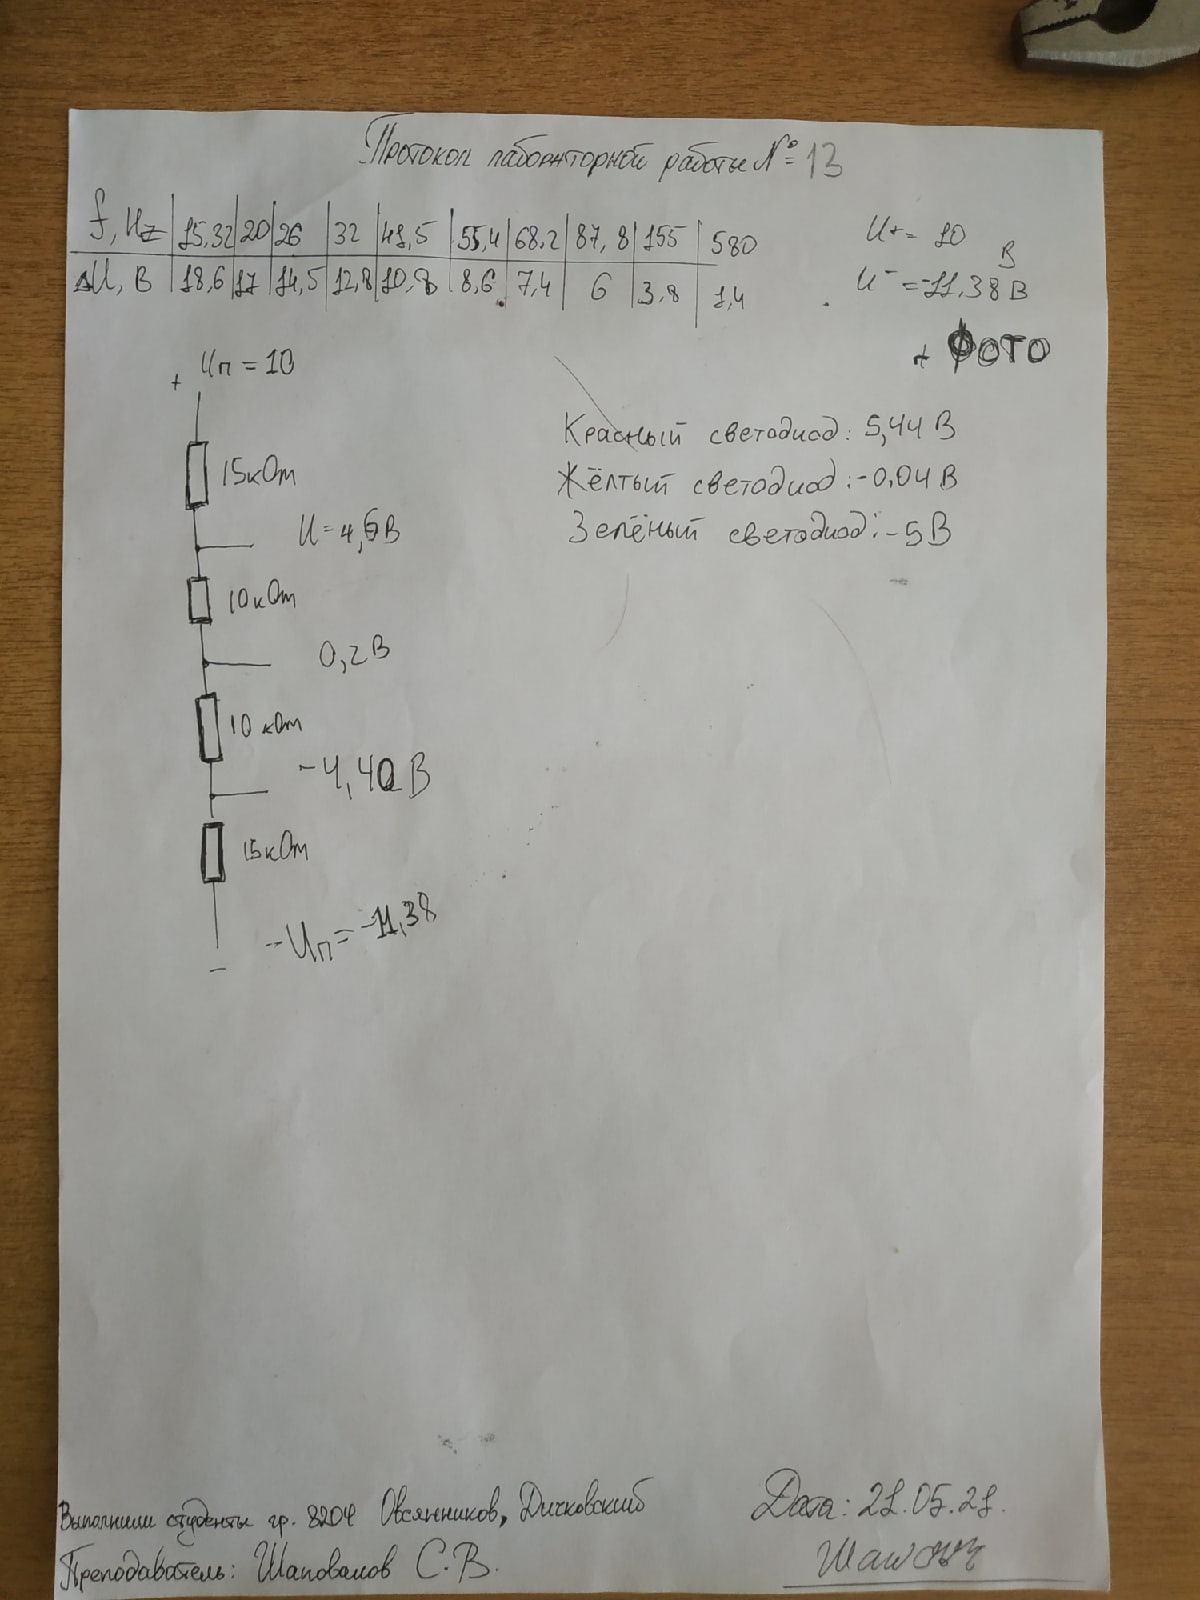 Протокол лабораторной работы № = 13
f, Hz | 15,32 | 20 | 26 | 32 | 41,5 | 55,4 | 68,2 | 87,8 | 155 | 580
ΔU, В | 18,6 | 17 | 14,5 | 12,8 | 10,8 | 8,6 | 7,4 | 6 | 3,8 | 1,4
U+ = 10 В
U- = -11,38 В
+ ФОТО
+ Uп = 10
15кОм
U = 4,6В
10кОм
0,2В
10 кОм
-4,40 В
15кОм
-Uп = -11,38
-
Красный светодиод: 5,44 В
Жёлтый светодиод: -0,04 В
Зелёный светодиод: -5В
Выполнили студенты гр. 8204 Овсянников, Дичковский
Преподаватель: Шаповалов С.В.
Дата: 21.05.21.